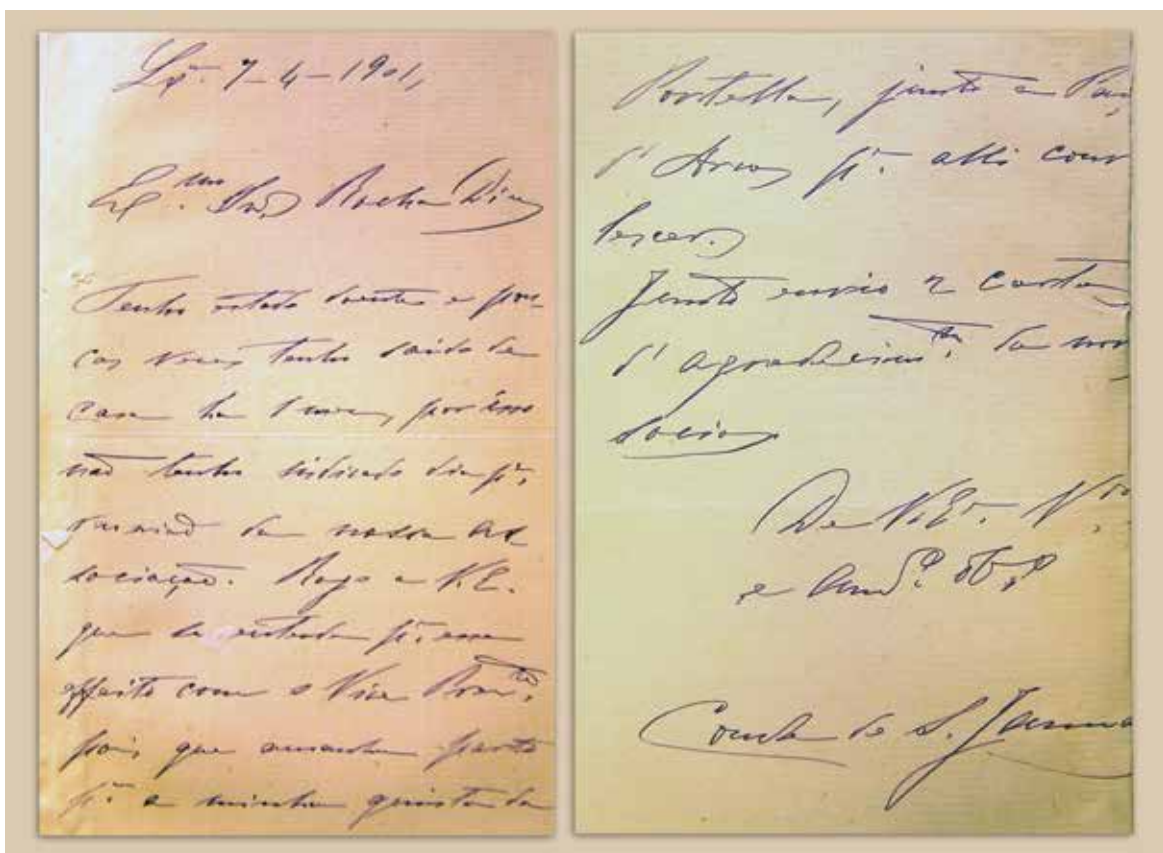 Lxª 7-4-1901,
Exmo. Snr. Rocha Dias
Tenho estado doente e pou-
cas vezes tenho saido de
casa ha 1 mez, por isso
não tenho indicado dia pª.
reunião da nossa As
sociação. Rogo a V.E.
que se entenda pª. esse
effeito com o Vice Presidte.
pois que amanhã parto
pª. a minha quinta da
Portella, junto a Paç
d'Arcos pª. alli conv
lescer.
Junto envio 2 cartas
d'agradecimto. de nov
socios
De V.Exª.
e
Conde de S. Janua